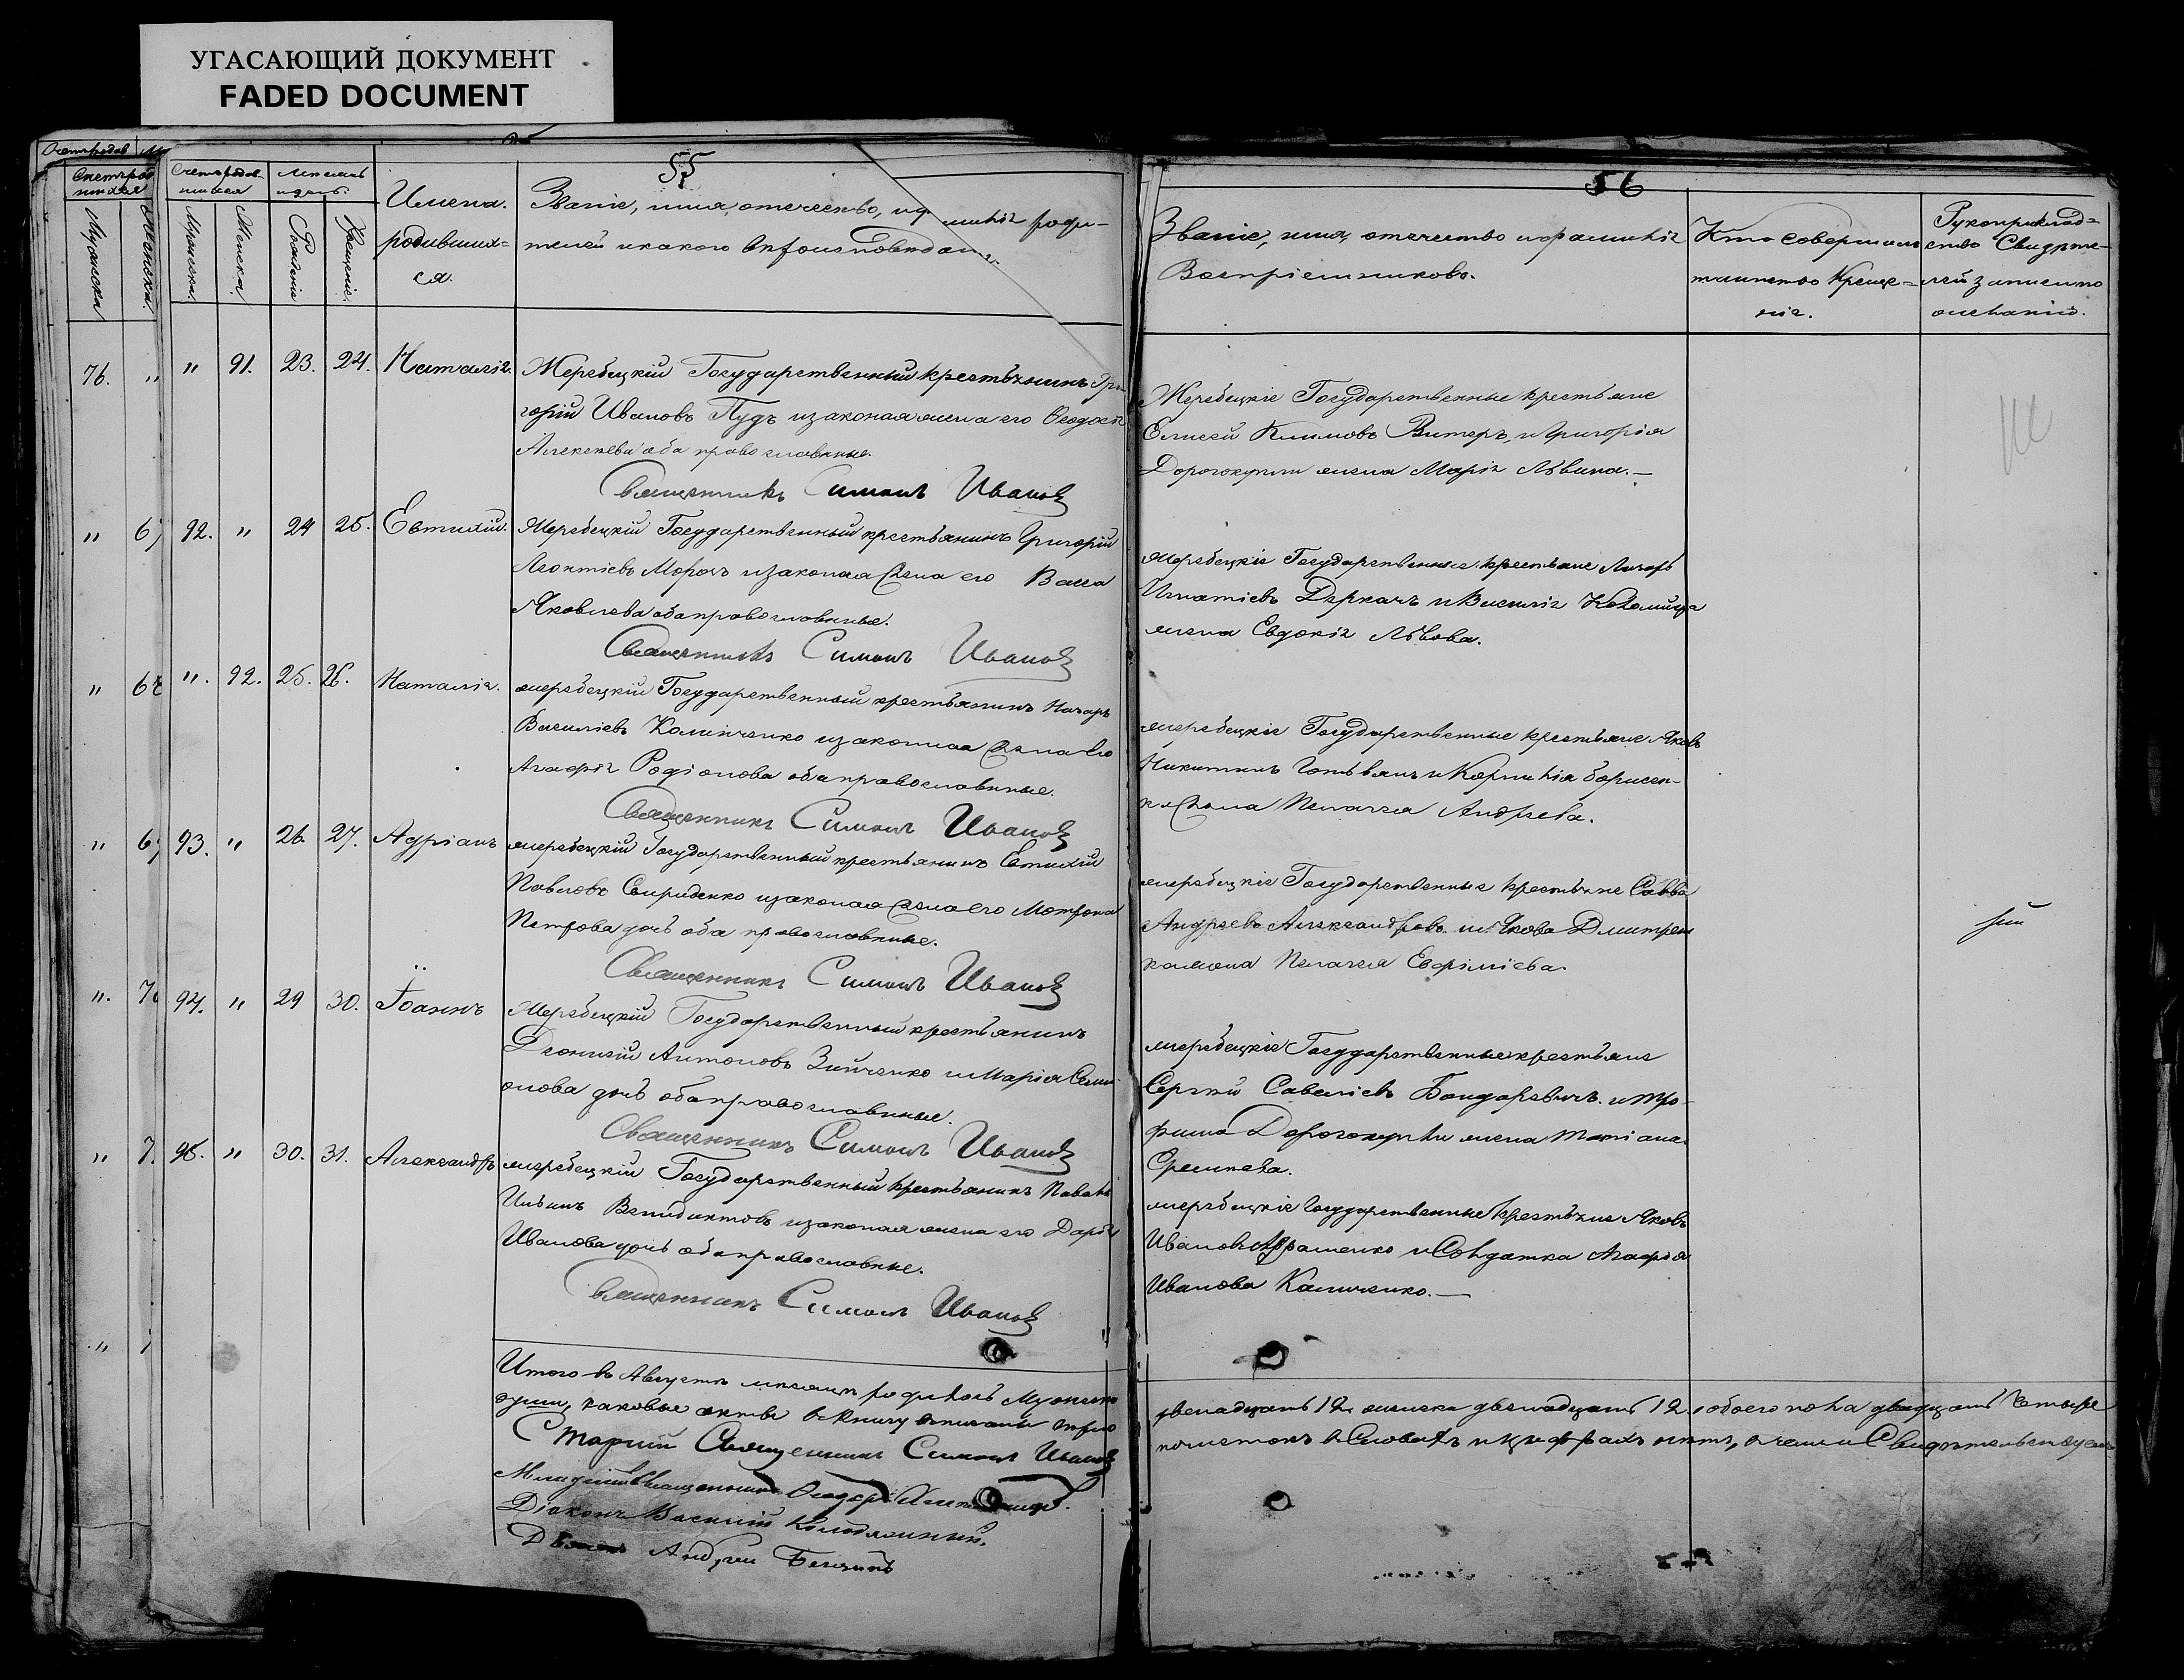 УГАСАЮЩИЙ ДОКУМЕНТ
FADED DOCUMENT
55
Имена
родивших=
ся.
Званіе, имя, отечество, и
роди-
телей и какого
76. "
" 91. 23. 24. Наталія.
Жеребецкій Государственный крестьянинъ Гри
горій Ивановъ Пудъ изаконая жена его Ѳеодосія
Алексѣева оба православные.
Священникъ Симонъ Ивановъ
" 92. " 24 25. Евтихій.
Жеребецкій Государственный крестьянинъ Григорій
Леонтіевъ Морозъ изаконая жена его Васса
Яковлева оба православные.
Священникъ Симонъ Ивановъ
" ". 92. 25. 26. Наталія.
жеребецкій Государственный крестьянинъ Назаръ
Василіевъ Калинченко изаконная жена его
Агафія Родіонова оба православные.
Священникъ Симонъ Ивановъ
" 93. " 26. 27. Адріанъ
жеребецкій Государственный крестьянинъ Евтихій
Павловъ Свириденко изаконая жена его Матрона
Петрова дочь оба православные.
Священникъ Симонъ Ивановъ
". 94. " 29 30. Іоаннъ
Жеребецкій Государственный крестьянинъ
Діонисій Антоновъ Зинченко и Марія Сим
онова дочь оба православные.
Священникъ Симонъ Ивановъ
" 95. " 30. 31. Александръ
жеребецкій Государственный крестьянинъ Павелъ
Ильинъ Венидиктовъ изаконая жена его Дарія
Иванова дочь оба православные.
Священникъ Симонъ Ивановъ
Итого въ Августѣ мѣсяцѣ родилось Мужеска
души, каковые акты в книгу вписаны
Старший Священникъ Симонъ Ивановъ
Діаконъ Василій
Андрей
56
Званіе, имя, отечество и фамилія
Воспріемниковъ.
Кто совершалъ
таинство Креще=
нія.
Рукоприклад=
ство Свидѣте-
лей записи по
желанію.
Жеребецкіе Государственные крестьяне
Елисей Климовъ Витеръ, и Григорія
жена Марія Львина.—
жеребецкіе Государственные крестьяне Лазарь
Игнатіевъ Деркачъ и Василія
жена Евдокія Львова.
жеребецкіе Государственные крестьяне Яковъ
Никитинъ и Корнилія Борисен-
ка жена Пелагея Андреева.
жеребецкіе Государственные крестьяне Савва
Андреевъ Александровъ и Якова Дмитрен
ка жена Пелагея Евфиміева.
жеребецкіе Государственные крестьяне
Сергѣй Савеліевъ Бондаревичъ и Тро-
фима жена Татіана
жеребецкіе Государственные крестьяне Яковъ
Ивановъ и Солдатка Агафія
Иванова Каличенко.—
двенадцать 12. женска двенадцать 12. обоего пола двадцать четыре
помѣтокъ в Словахъ и цифрахъ нѣтъ, в чемъ и Свидѣтельствуемъ